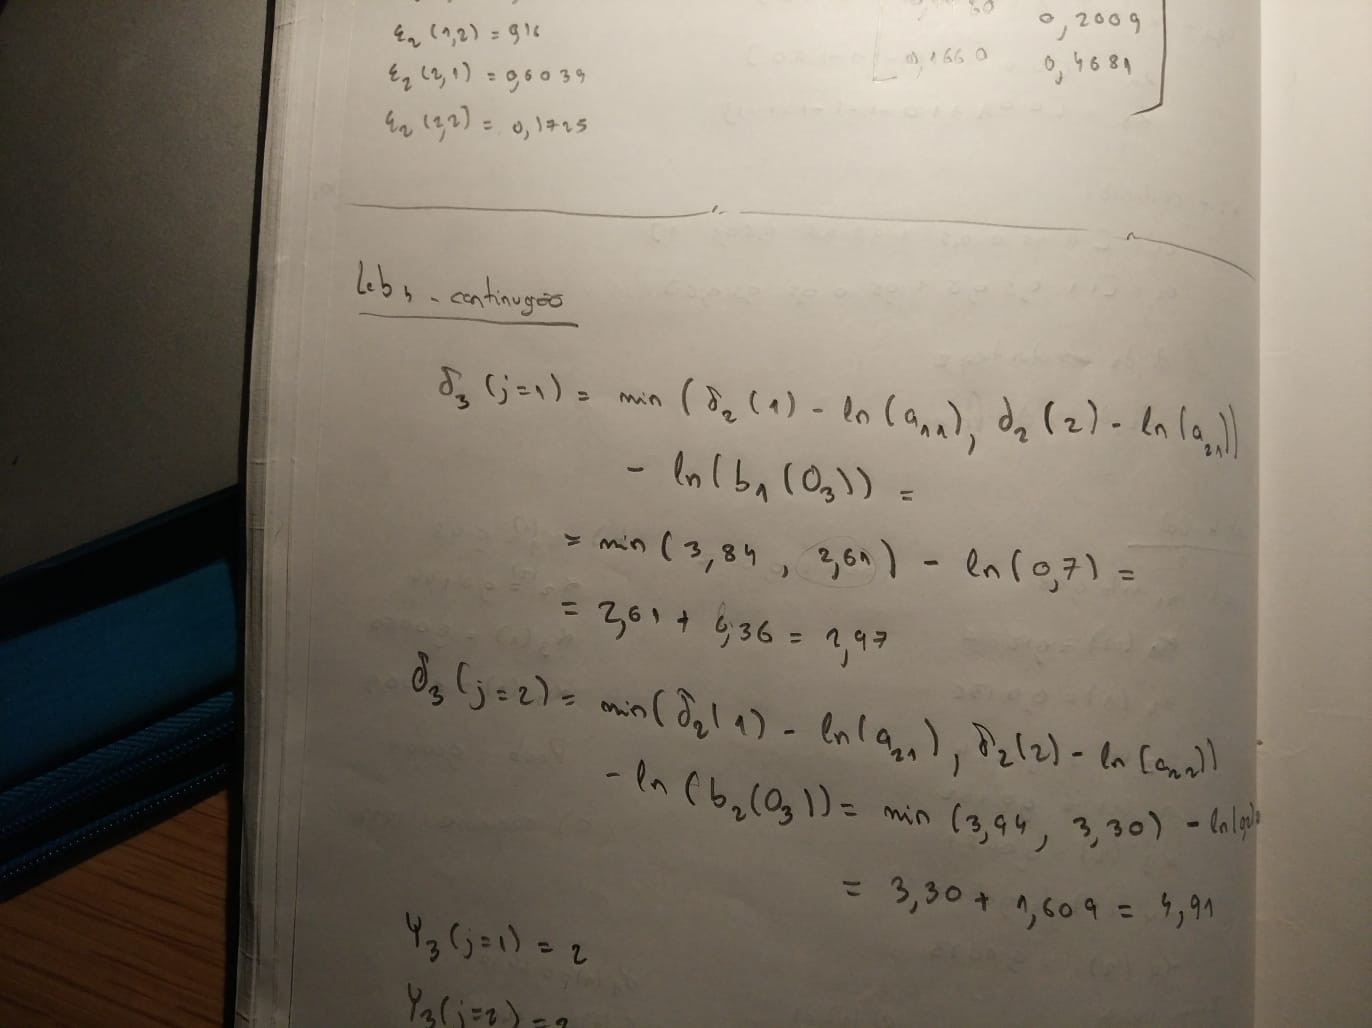 ξ₂ (1,2) = 0,16
0,2009
ξ₂ (2,1) = 0,6039
0,1660 0,4681
ξ₂ (2,2) = 0,1725
continuação
δ₃ (j=1) = min (δ₂ (1) - ln (a₁₁), δ₂ (2) - ln (a₂₁))
- ln (b₁ (O₃)) =
= min (3,84 , 2,61) - ln (0,7) =
= 2,61 + 0,36 = 2,97
δ₃ (j=2) = min (δ₂(1) - ln (a₂₁), δ₂(2) - ln (a₂₂))
- ln (b₂(O₃)) = min (3,94, 3,30) - ln
= 3,30 + 1,609 = 4,91
Ψ₃ (j=1) = 2
Ψ₃ (j=2) = 2